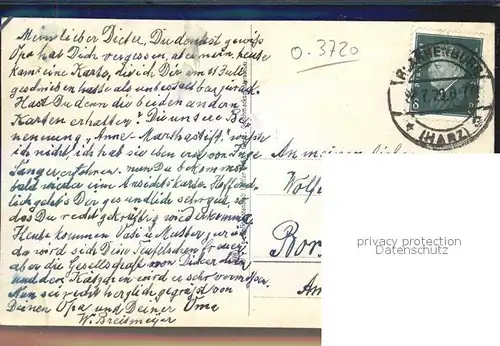 Mein lieber Dieter, Du denkst gewiss
Opa hat Dich vergessen, aber nein, heute
kam eine Karte, die ich Dir am 11 Juli
geschrieben hatte als unbestellbar zurück.
Hast Du denn die beiden andern
Karten erhalten? Die unsere Be-
nennung, Anne-Marthastift, wusste
ich nicht, ich hab sie eben erst von Inge
Sanger erfahren. nun Du bekommst
bald wieder eine Ansichtskarte. Hoffent-
lich geht's Dir gesundlich sehr gut so
das Du recht gekräftigt wird
Heute kommen Vati u Mutter zurück
da wird sich Dein
aber die Gesellschaft von Dicker
und den Kätzchen wird er sehr vermissen
Nun sei recht herzlich gegrüsst von
Deinen Opa und Deiner Oma
W. Breitmeyer
0.3720
(HARZ)
An meinen lieben
Wolf
Bor
Am
privacy protection
Datenschutz